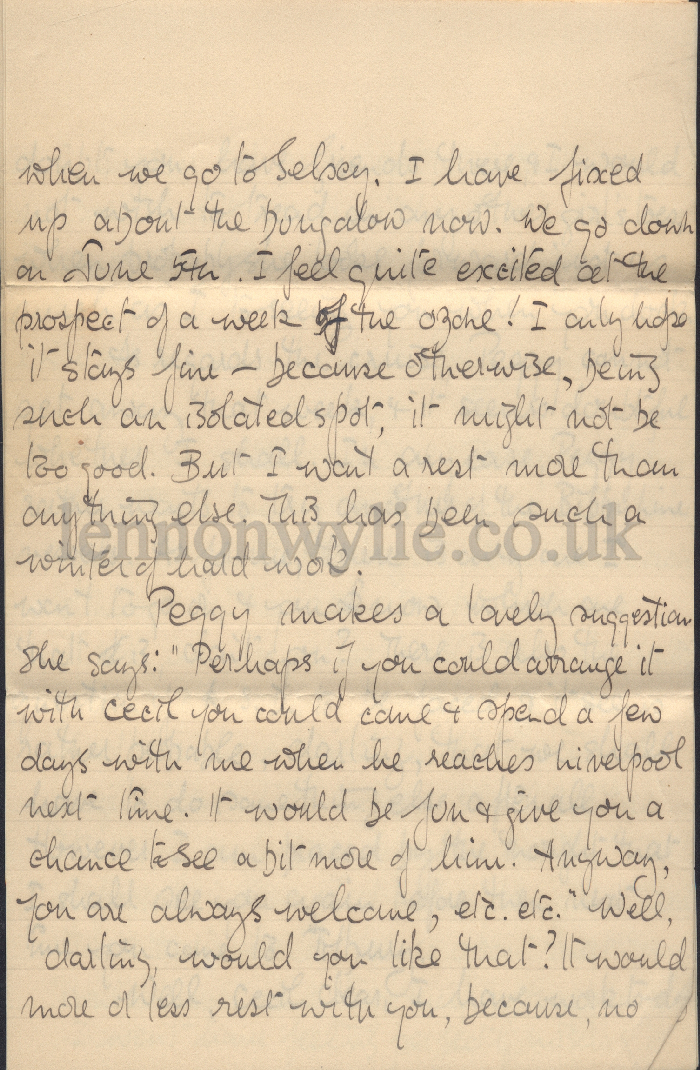 when we go to Selsey. I have fixed
up about the bungalow now. We go down
on June 5th. I feel quite excited at the
prospect of a week of the ozone! I only hope
it stays fine – because otherwise, being
such an isolated spot, it might not be
too good. But I want a rest more than
anything else. This has been such a
lennonwylie.co.uk
winter of hard work.
Peggy makes a lovely suggestion
she says: "Perhaps if you could arrange it
with Cecil you could come & spend a few
days with me when he reaches Liverpool
next time. It would be fun & give you a
chance to see a bit more of him. Anyway,
you are always welcome, etc. etc." Well,
darling, would you like that? It would
more or less rest with you, because, no